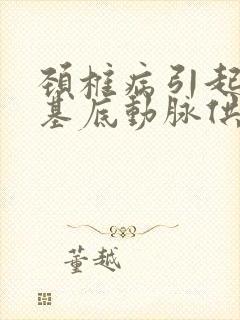 颈椎病引起
基底動脉供
董越